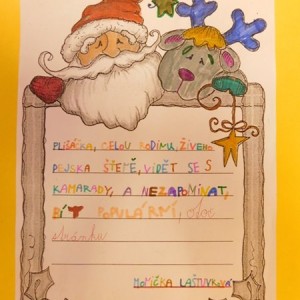 PLYŠÁČKA, CELOU RODINU, ŽIVÉHO
PEJSKA ŠTĚNĚ, VIDĚT SE S
KAMARÁDY, A NEZAPOMÍNAT,
BÝT POPULÁRNÍ,
MONIČKA LAŠTUVKOVÁ